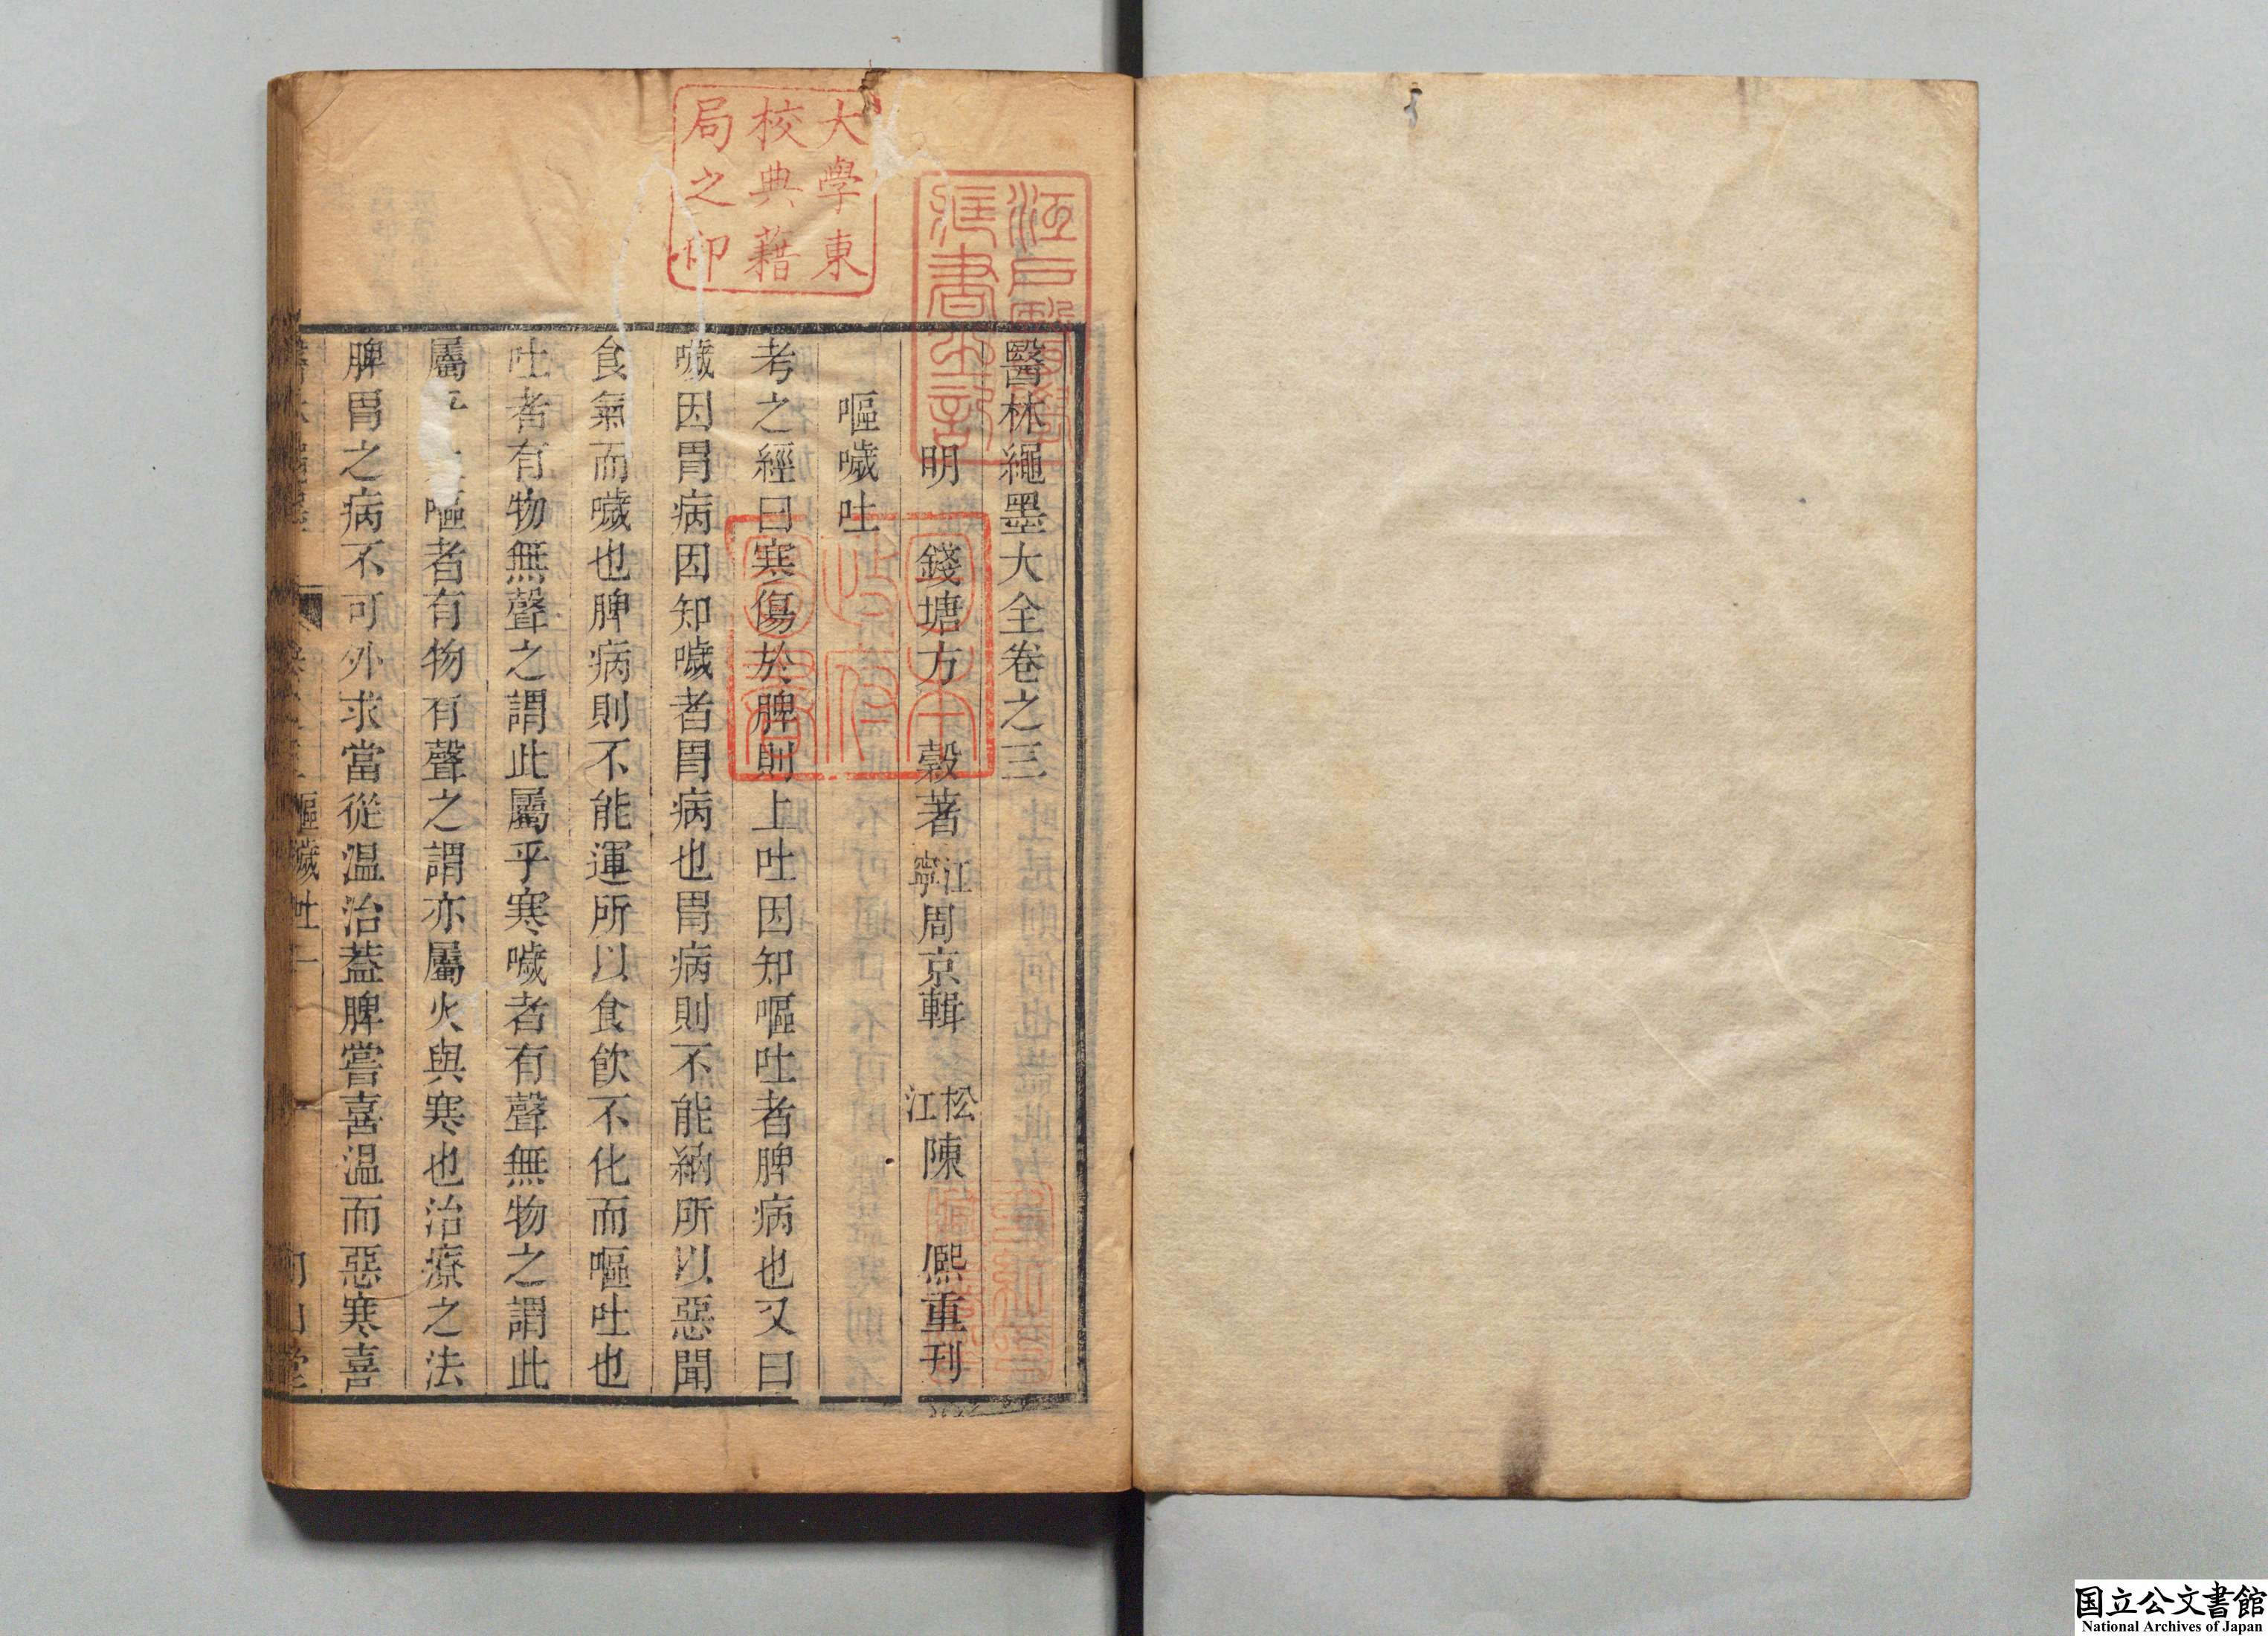 醫林繩墨大全卷之三
明 錢塘方 穀著 江寧周京輯 松江陳 熈重刊
嘔噦吐
考之經曰寒傷於脾則上吐因知嘔吐者脾病也又曰
噦因胃病因知噦者胃病也胃病則不能納所以惡聞
食氣而噦也脾病則不能運所以食飲不化而嘔吐也
吐者有物無聲之謂此屬乎寒噦者有聲無物之謂此
屬 嘔者有物有聲之謂亦屬火與寒也治療之法
脾胃之病不可外求當從温治葢脾嘗喜温而惡寒喜
嘔噦吐 一
大學東
校典藉
局之印
日本
政府
圖書
国立公文書館
National Archives of Japan